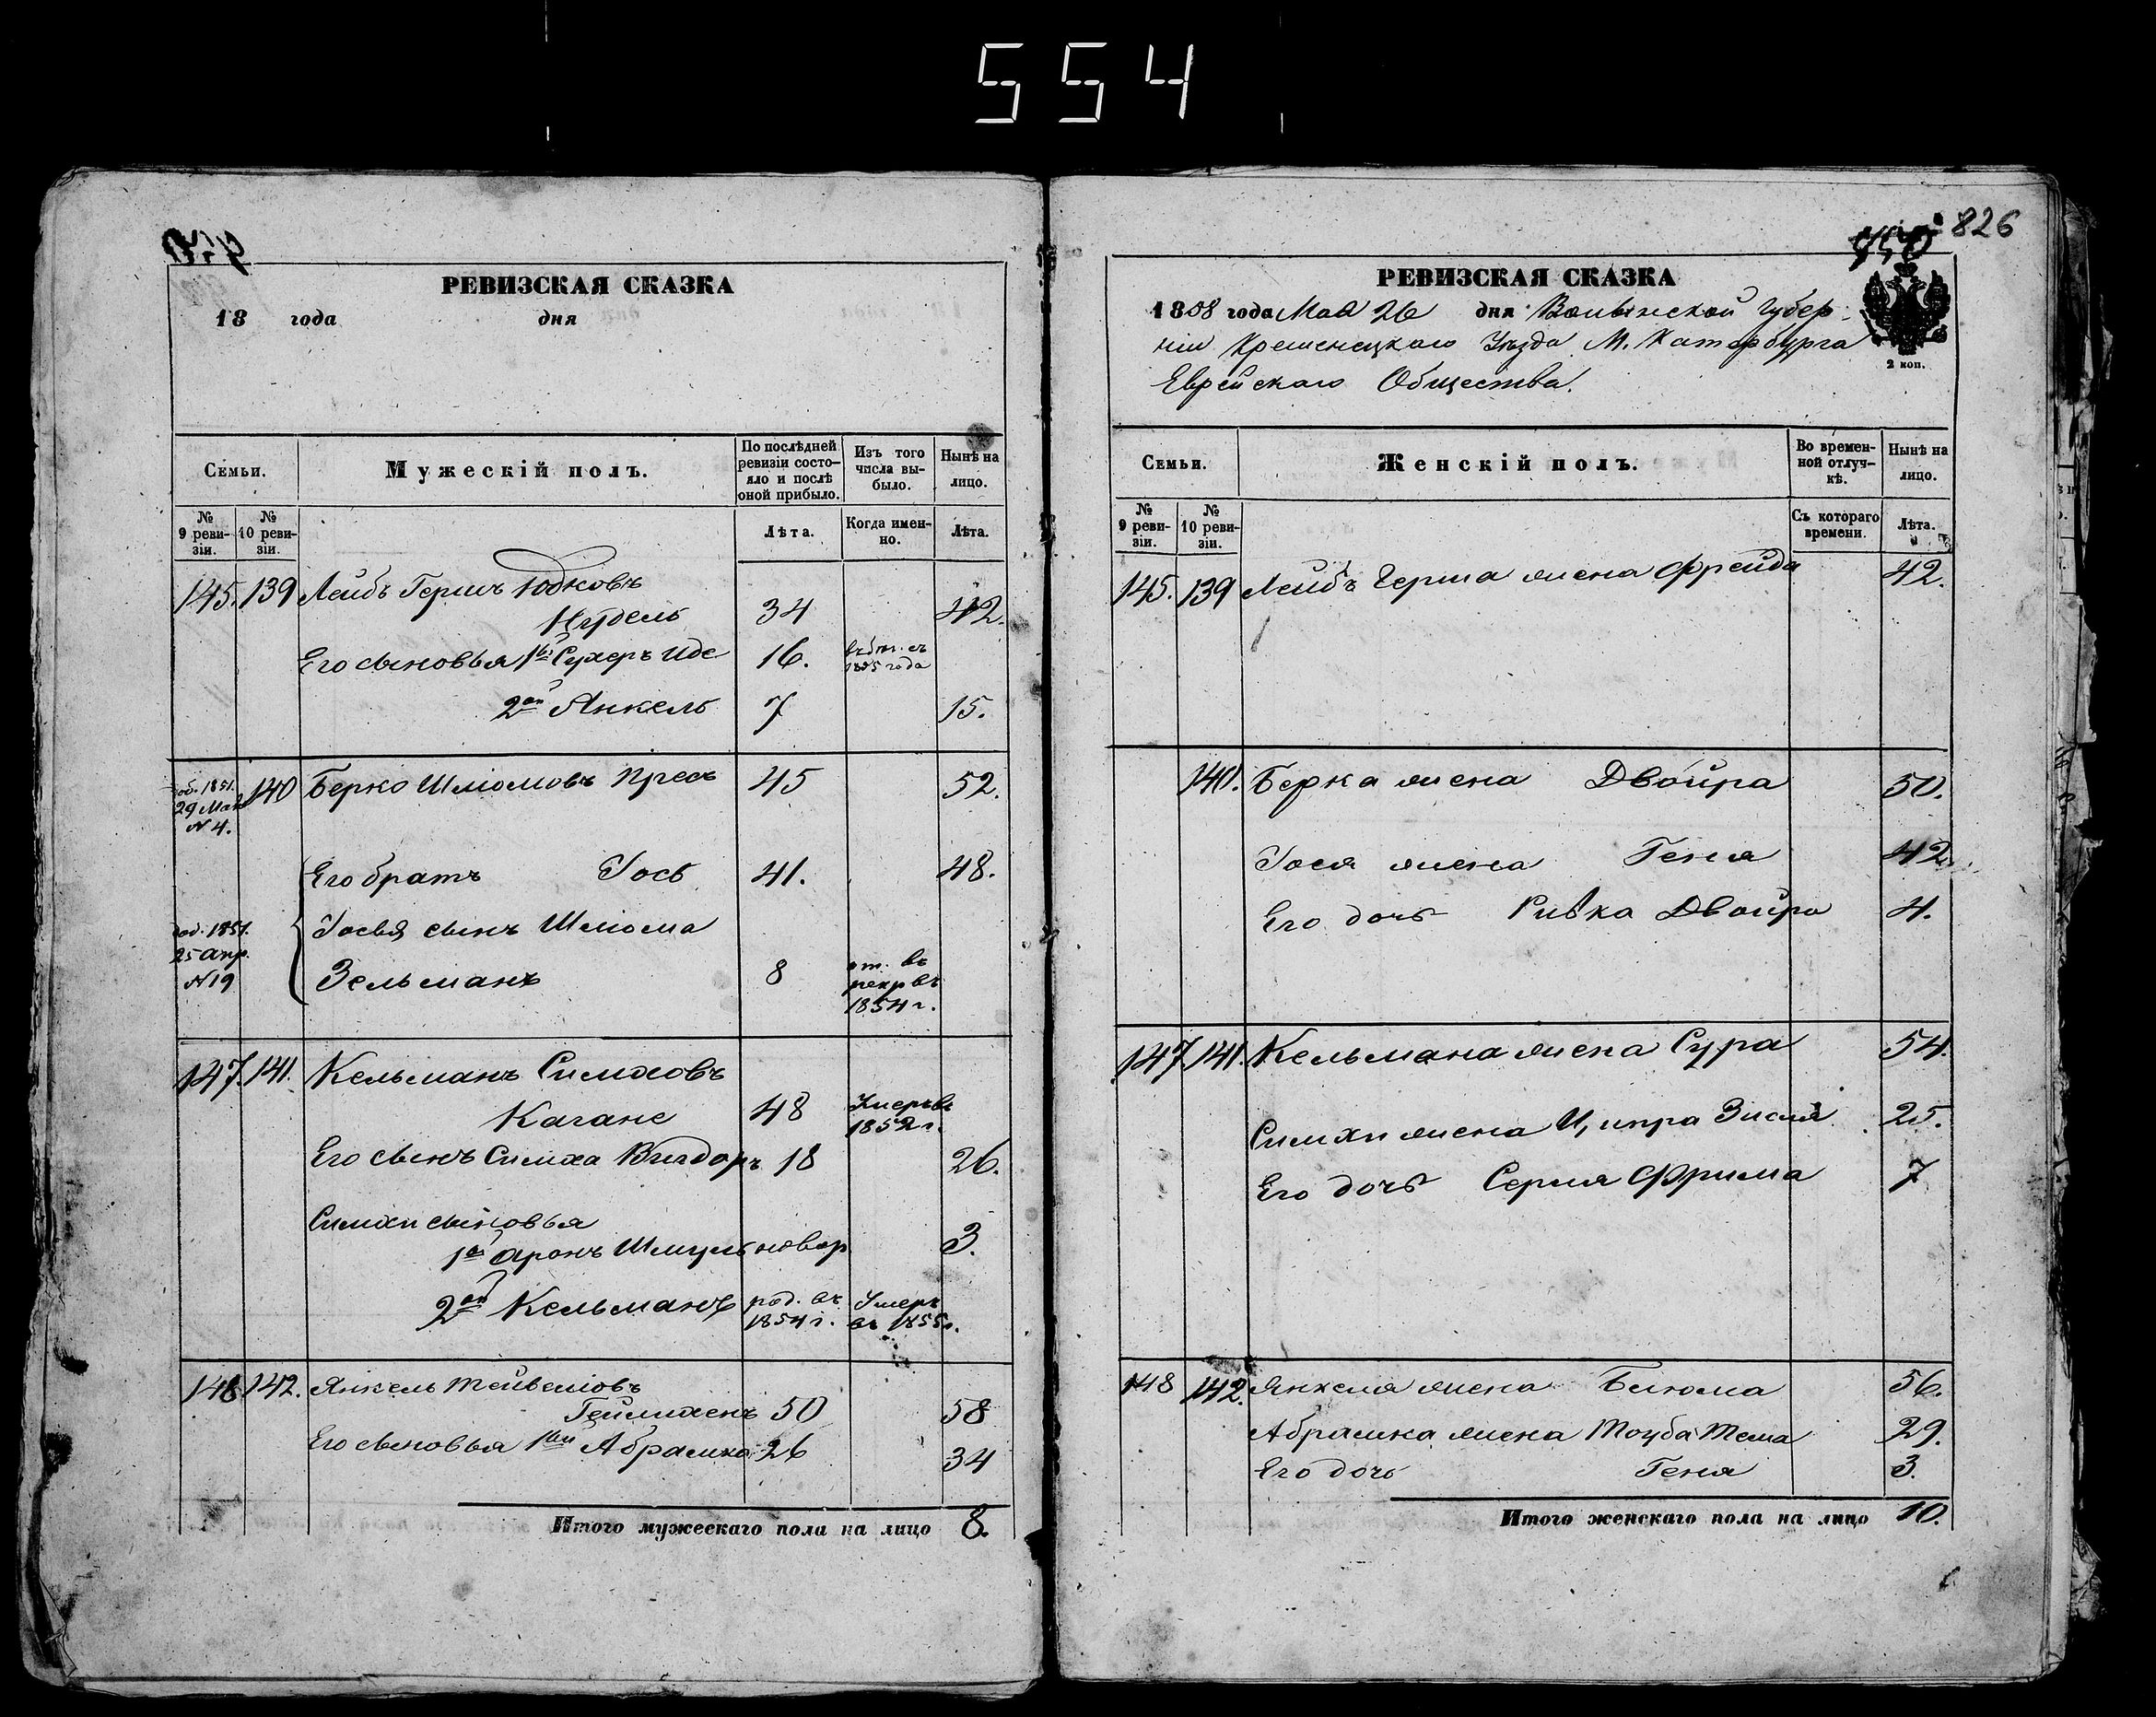 554
950
РЕВИЗСКАЯ СКАЗКА
18 года дня
Семьи.
Мужескій полъ.
По послѣдней ревизіи состояло и послѣ оной прибыло.
Изъ того числа выбыло.
Нынѣ на лицо.
№ 9 ревизіи.
№ 10 ревизіи.
Лѣта.
Когда именно.
Лѣта.
145. 139 Лейбъ Гершъ Юдковъ
Нудель 34 42.
Его сыновья 1й Сухеръ Иде 16. въ бѣг. съ
1855 года
2ой Янкель 7 15.
доб. 1851. 140 Берко Шліомовъ Пресъ 45 52.
29 Мая
N 4.
Его братъ Іось 41. 48.
доб. 1851. Іосья сынъ Шліома
25 Апр. Зельманъ 8 от. въ
N 19 рекр въ
1854 г.
147. 141. Кельманъ Симховъ
Кагане 48 Умеръ въ
1852 г.
Его сынъ Симха Вигдоръ 18 26.
Симхи сыновья
1й Аронъ Шмуль новор 3.
2ой Кельманъ род. въ Умеръ
1854 г. въ 1855 г.
148 142. Янкель Тейвелювъ
Геймихенъ 50 58
Его сыновья 1ый Абрамко 26 34
Итого мужескаго пола на лицо 8.
950 826
РЕВИЗСКАЯ СКАЗКА
1858 года Мая 26 дня Волынской Губер-
ніи Кременецкаго Уѣзда М. Катербурга
Еврейскаго Общества.
2 коп.
Семьи.
Женскій полъ.
Во временной отлучкѣ.
Нынѣ на лицо.
№ 9 ревизіи.
№ 10 ревизіи.
Съ котораго времени.
Лѣта.
145. 139 Лейбъ Герша жена Фрейда 42.
140. Берка жена Двойра 50.
Іося жена Геня 42.
Его дочь Ривка Двойра 4.
147 141. Кельмана жена Сура 54.
Симхи жена Ципра Зися 25.
Его дочь Серля Фрима 7
148 142. Янкеля жена Блюма 56.
Абрамка жена Тоуба Тема 29.
Его дочь Геня 3.
Итого женскаго пола на лицо 10.